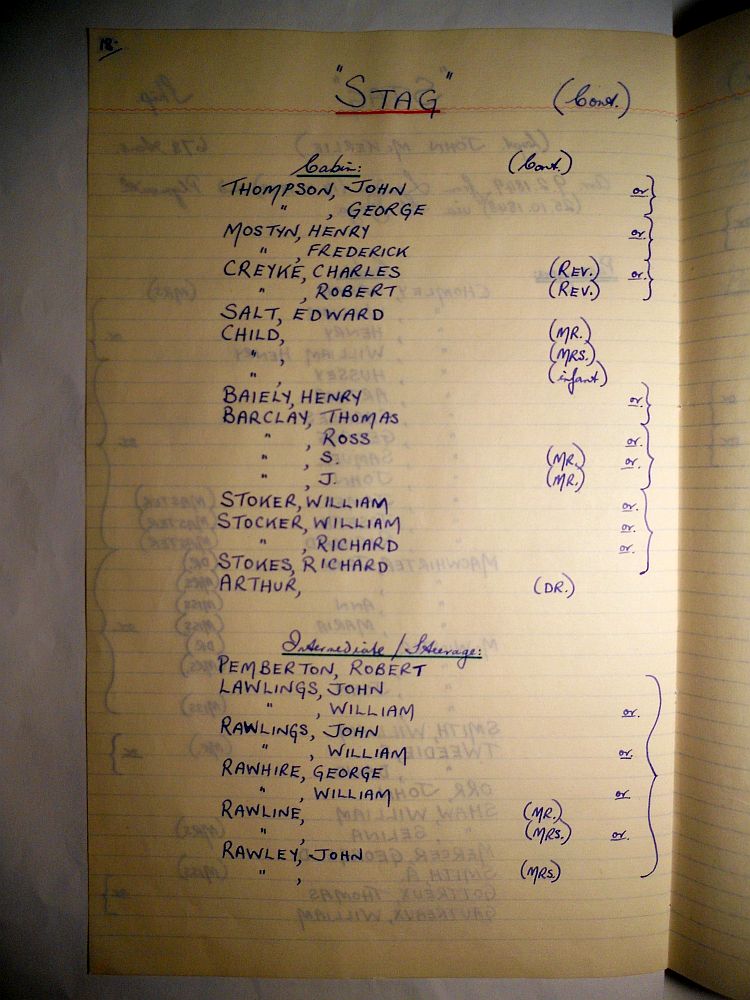 18.
"STAG" (Cont.)
Cabin: (Cont.)
THOMPSON, JOHN or }
" , GEORGE
MOSTYN, HENRY or }
" , FREDERICK
CREYKE, CHARLES (REV.) or }
" , ROBERT (REV.)
SALT, EDWARD
CHILD, (MR.)
" , (MRS.)
" , (infant)
BAIELY, HENRY or }
BARCLAY, THOMAS
" , ROSS or
" , S. (MR.) or }
" , J. (MR.)
STOKER, WILLIAM or
STOCKER, WILLIAM or
" , RICHARD or }
STOKES, RICHARD
ARTHUR, (DR.)
Intermediate / Steerage:
PEMBERTON, ROBERT
LAWLINGS, JOHN
" , WILLIAM or
RAWLINGS, JOHN
" , WILLIAM or
RAWHIRE, GEORGE
" , WILLIAM or
RAWLINE, (MR.)
" , (MRS.) or
RAWLEY, JOHN
" , (MRS.)